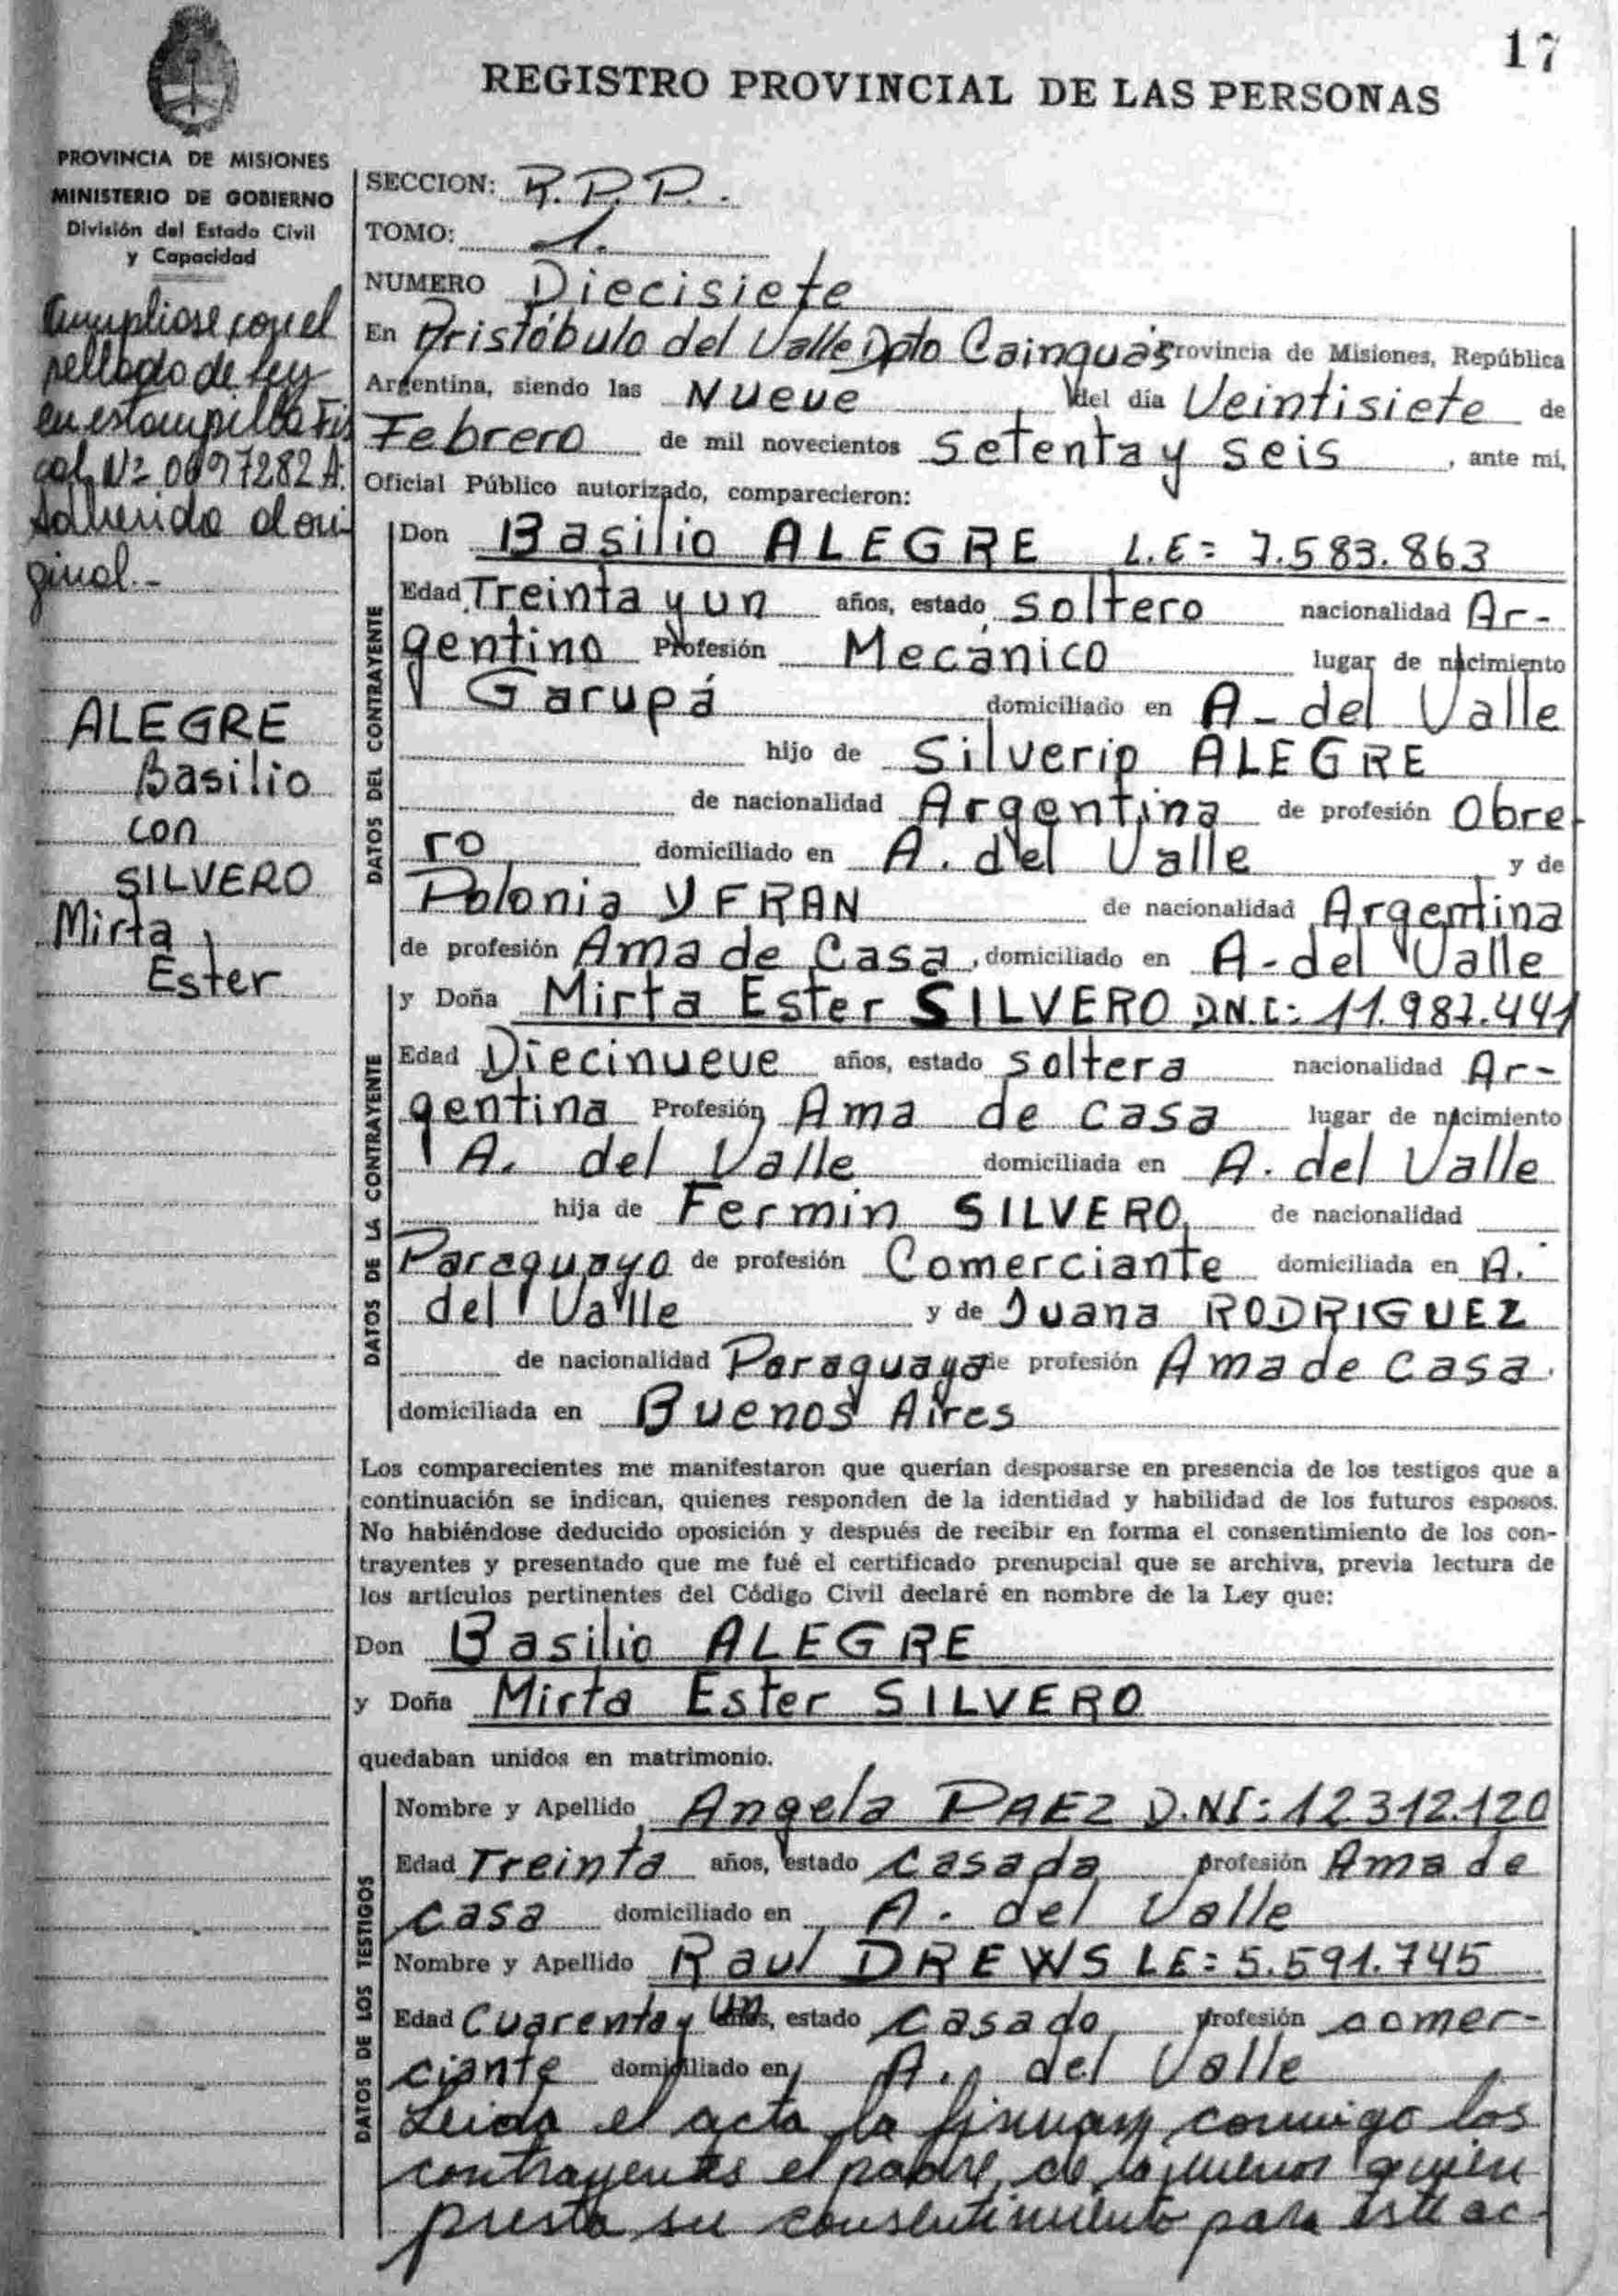 17
REGISTRO PROVINCIAL DE LAS PERSONAS
PROVINCIA DE MISIONES
MINISTERIO DE GOBIERNO
División del Estado Civil
y Capacidad
Cumpliose con el
sellado de ley
en estampilla Fis
cal Nº 0097282 A.
Adherida al ori
ginal.-
ALEGRE
Basilio
con
SILVERO
Mirta
Ester
SECCION: R.P.P.
TOMO: 1.
NUMERO Diecisiete
En Aristóbulo del Valle Dpto Cainguás Provincia de Misiones, República
Argentina, siendo las Nueve del día Veintisiete de
Febrero de mil novecientos setenta y seis, ante mí,
Oficial Público autorizado, comparecieron:
DATOS DEL CONTRAYENTE
Don Basilio ALEGRE L.E= 7.583.863
Edad Treinta y un años, estado soltero nacionalidad Ar-
gentino Profesión Mecánico lugar de nacimiento
Garupá domiciliado en A- del Valle
hijo de Silverio ALEGRE
de nacionalidad Argentina de profesión Obre
ro domiciliado en A. del Valle y de
Polonia YFRAN de nacionalidad Argentina
de profesión Ama de Casa, domiciliado en A- del Valle
DATOS DE LA CONTRAYENTE
y Doña Mirta Ester SILVERO D.N.I: 11.987.441
Edad Diecinueve años, estado soltera nacionalidad Ar-
gentina Profesión Ama de casa lugar de nacimiento
A. del Valle domiciliada en A. del Valle
hija de Fermin SILVERO, de nacionalidad
Paraguayo de profesión Comerciante domiciliada en A.
del Valle y de Juana RODRIGUEZ
de nacionalidad Paraguaya de profesión Ama de casa.
domiciliada en Buenos Aires
Los comparecientes me manifestaron que querían desposarse en presencia de los testigos que a
continuación se indican, quienes responden de la identidad y habilidad de los futuros esposos.
No habiéndose deducido oposición y después de recibir en forma el consentimiento de los con-
trayentes y presentado que me fué el certificado prenupcial que se archiva, previa lectura de
los artículos pertinentes del Código Civil declaré en nombre de la Ley que:
Don Basilio ALEGRE
y Doña Mirta Ester SILVERO
quedaban unidos en matrimonio.
DATOS DE LOS TESTIGOS
Nombre y Apellido Angela PAEZ D.NI: 12312.120
Edad Treinta años, estado casada profesión Ama de
casa domiciliado en A. del Valle
Nombre y Apellido Raul DREWS LE= 5.591.745
Edad Cuarenta y un años, estado casado, profesión comer-
ciante domiciliado en A. del Valle
Leida el acta la firman conmigo los
contrayentes el padre de la menor quien
presta su consentimiento para este ac-